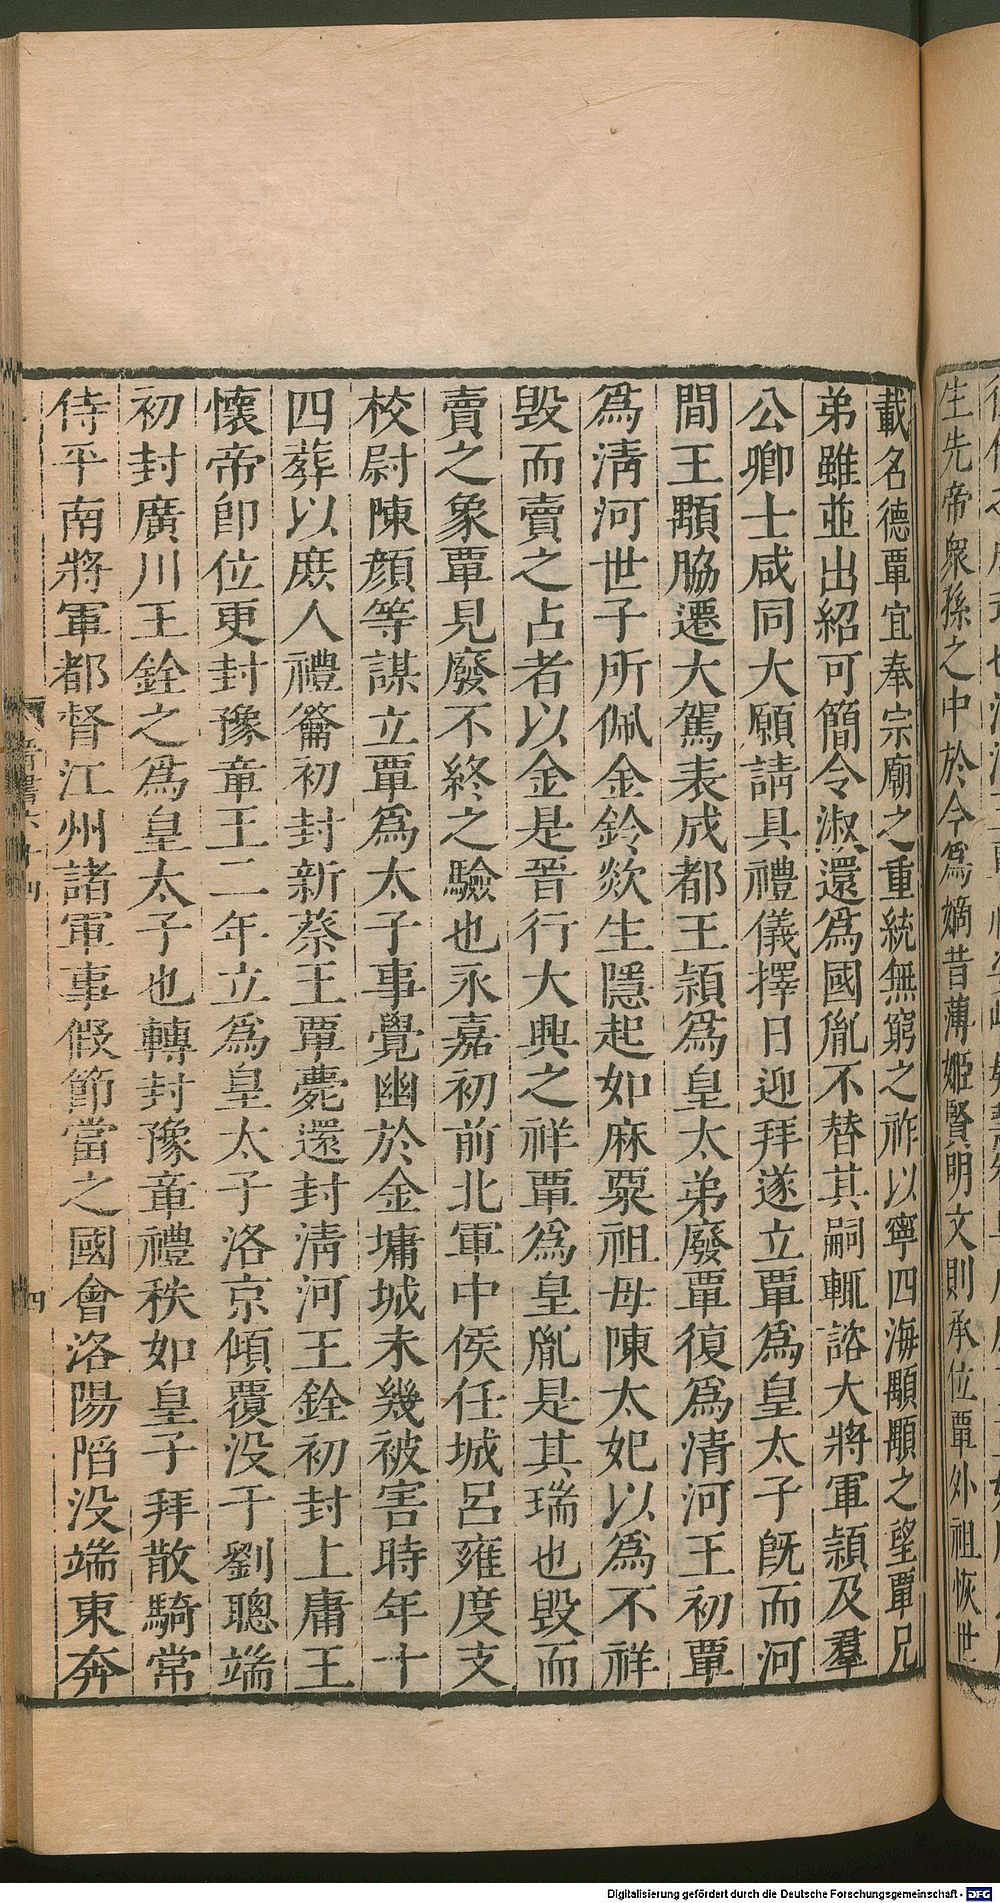 生先帝衆孫之中於今爲嫡昔薄姬賢明文則承位覃外祖恢世
載名德覃宜奉宗廟之重統無窮之祚以寧四海顒顒之望覃兄
弟雖並出紹可簡令淑還爲國胤不替其嗣輒諮大將軍頴及羣
公卿士咸同大願請具禮儀擇日迎拜遂立覃爲皇太子旣而河
間王顒脇遷大駕表成都王頴爲皇太弟廢覃復爲清河王初覃
爲淸河世子所佩金鈴歘生隱起如麻粟祖母陳太妃以爲不祥
毁而賣之占者以金是晉行大興之祥覃爲皇胤是其瑞也毁而
賣之象覃見廢不終之驗也永嘉初前北軍中侯任城呂雍度支
校尉陳顔等謀立覃爲太子事覺幽於金墉城未幾被害時年十
四葬以庶人禮籥初封新蔡王覃薨還封淸河王銓初封上庸王
懷帝卽位更封豫章王二年立爲皇太子洛京傾覆没于劉聰端
初封廣川王銓之爲皇太子也轉封豫章禮秩如皇子拜散騎常
侍平南將軍都督江州諸軍事假節當之國會洛陽䧟没端東奔
四
Digitalisierung gefördert durch die Deutsche Forschungsgemeinschaft - DFG